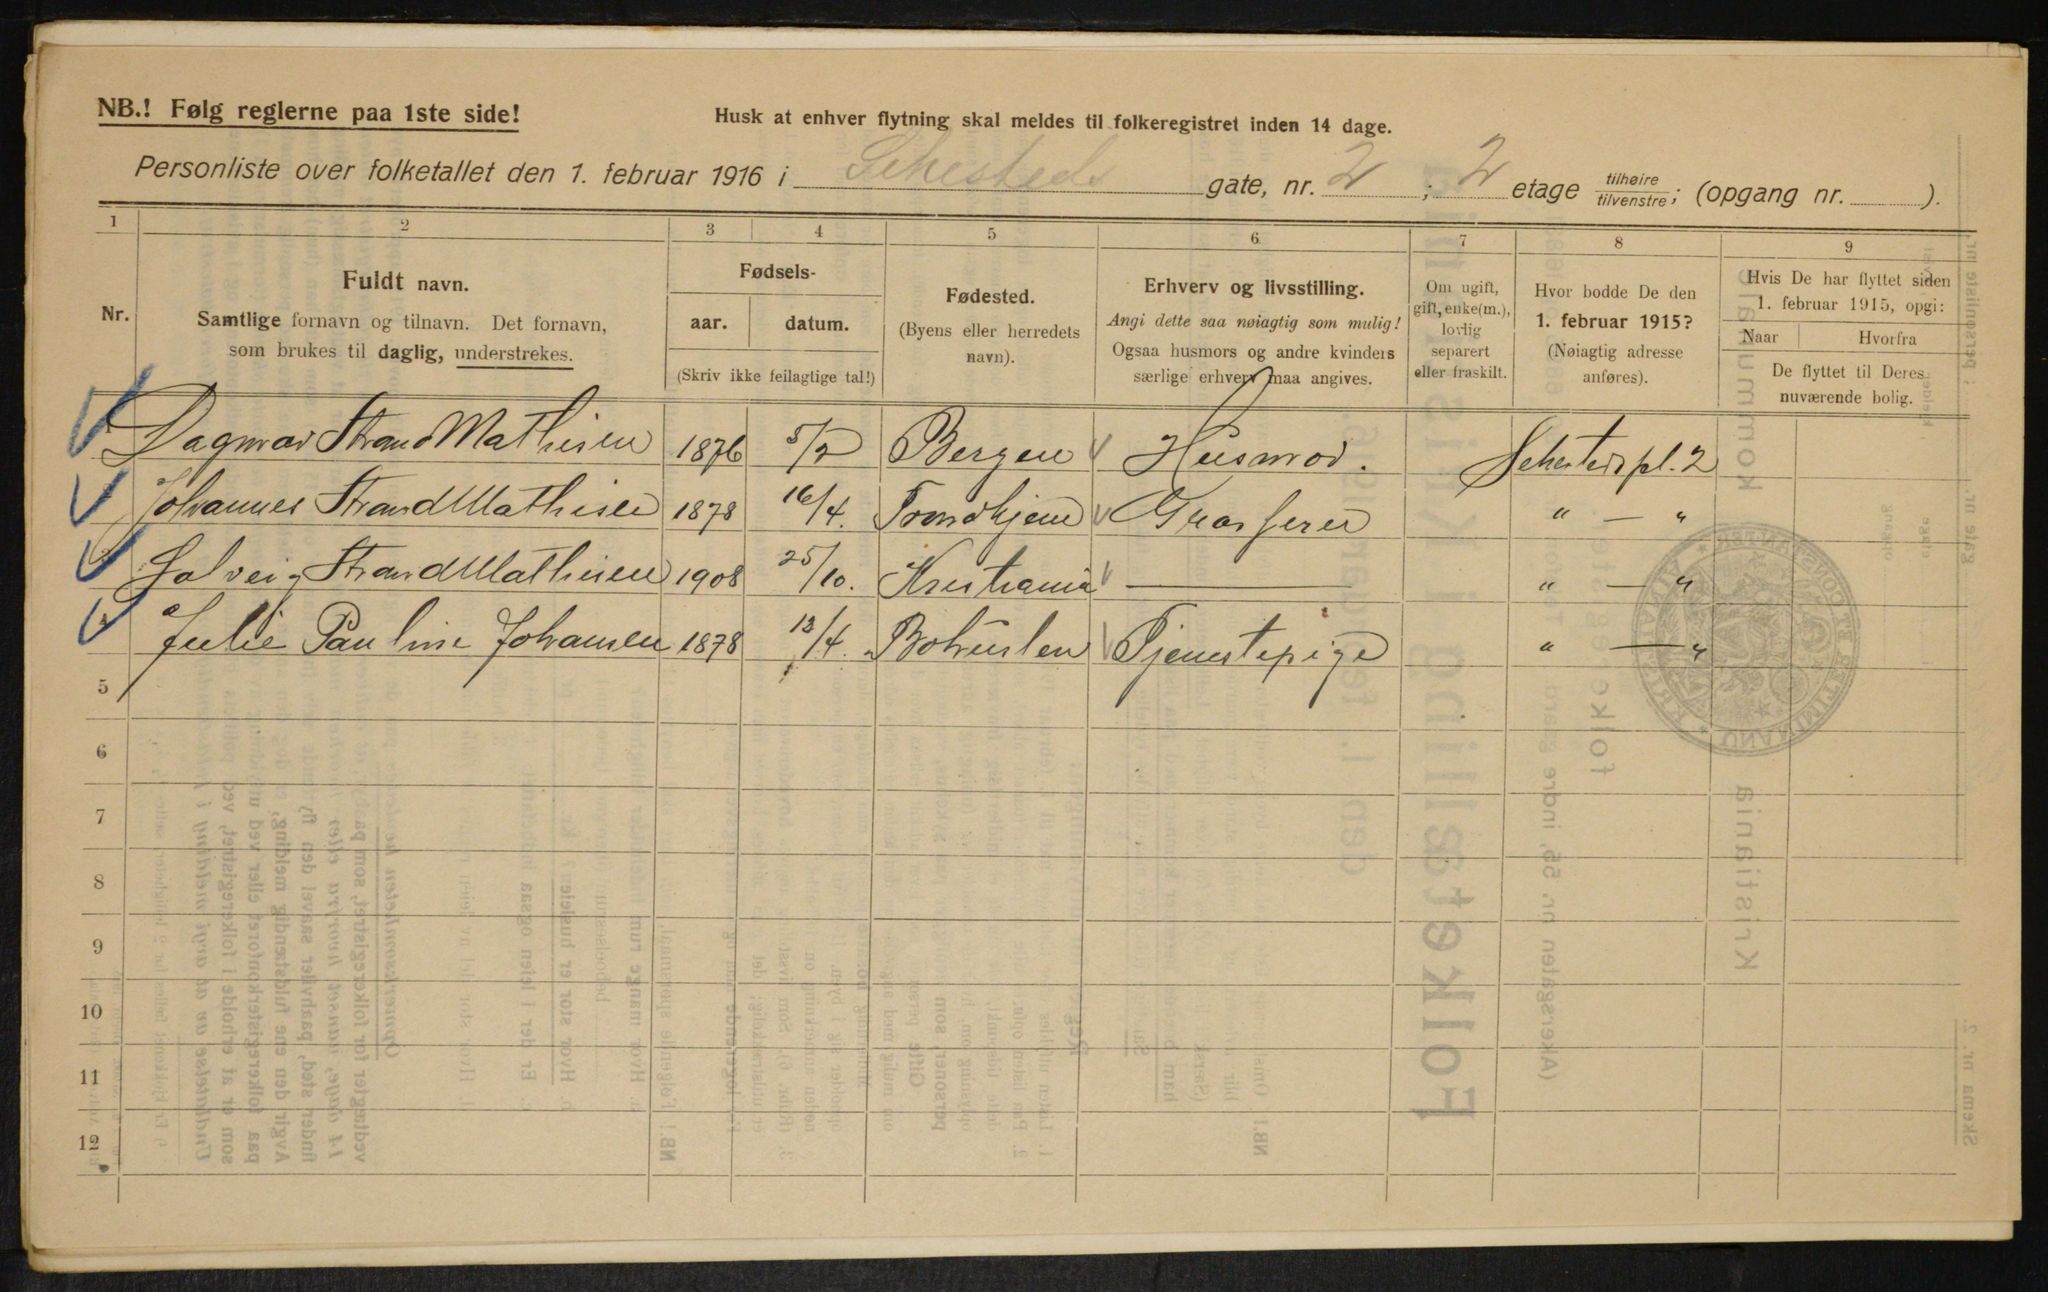 NB.! Følg reglerne paa 1ste side!
Husk at enhver flytning skal meldes til folkeregistret inden 14 dage.
Personliste over folketallet den 1. februar 1916 i Sehesteds gate, nr. 2 ; 2 etage tilhøire/tilvenstre; (opgang nr. ).
1 2 3 4 5 6 7 8 9
Nr. Fuldt navn. Samtlige fornavn og tilnavn. Det fornavn, som brukes til daglig, understrekes.
Fødsels- aar. datum. (Skriv ikke feilagtige tal!)
Fødested. (Byens eller herredets navn).
Erhverv og livsstilling. Angi dette saa nøiagtig som mulig! Ogsaa husmors og andre kvinders særlige erhverv maa angives.
Om ugift, gift, enke(m.), lovlig separert eller fraskilt.
Hvor bodde De den 1. februar 1915? (Nøiagtig adresse anføres).
Hvis De har flyttet siden 1. februar 1915, opgi: Naar Hvorfra De flyttet til Deres nuværende bolig.
Dagmar Strand Mathisen 1876 5/2 Bergen Husmor. Sehesteds pl. 2
Johannes Strand Mathisen 1878 16/4. Trondhjem Grosserer " — "
Solveig Strand Mathisen 1908 25/10. Kristiania — " — "
4 Julie Pauline Johansen 1878 13/4. Bohuslen Tjenestepige " — "
5
6
7
8
9
10
11
12